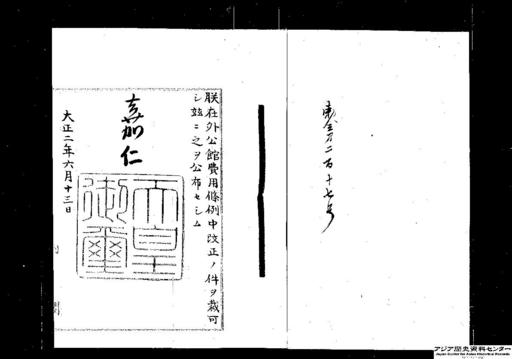 勅令第二百十七号
朕在外公館費用條例中改正ノ件ヲ裁可
シ玆ニ之ヲ公布セシム
嘉仁
天皇
御璽
大正二年六月十三日
アジア歴史資料センター
Japan Center for Asian Historical Records